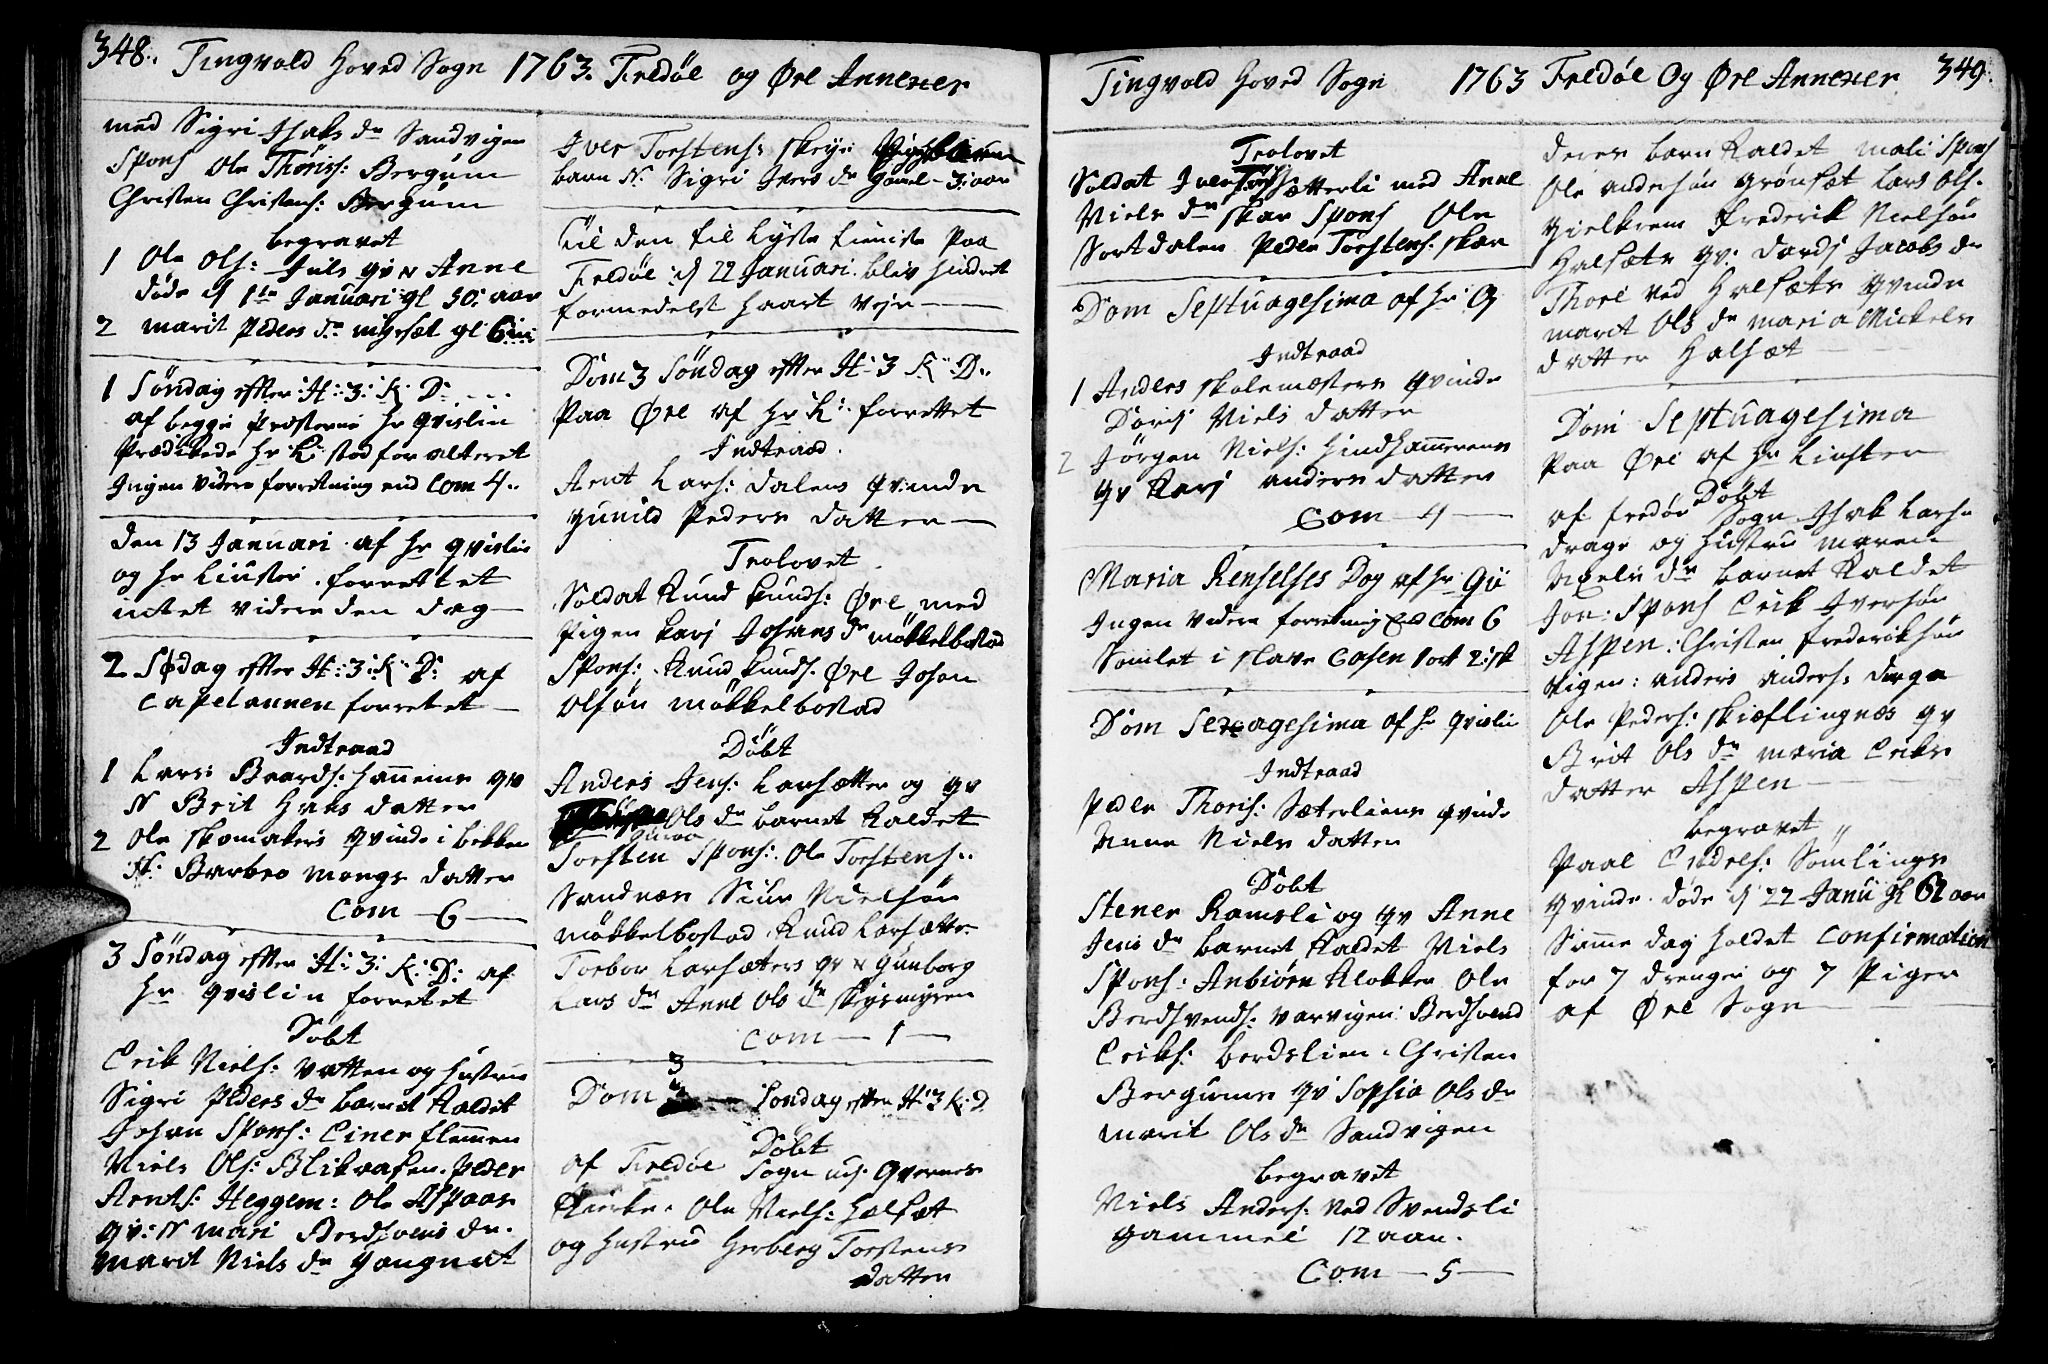 348. Tingvold Hoved Sogn 1763. Fredøe og Øre Annexer
med Sigri Isaks dr Sandvigen
Spons Ole Thoriss: Bergum
Christen Christens: Bergum
begravet
1 Ole Ols: Juls qv Anne
døde d 1te Januari gl 50: aar
2 marit Peders dr myrset gl
1 Søndag efter H: 3: K: D:
af begge Præsterne Hr qvislin
Prædikede Hr Li stod for alteret
Ingen videre forretning end Com 4..
Den 13 Januari af Hr qvislin
og Hr Linster forrettet
intet videre den dag
2 Sødag efter H: 3: K: D: af
Capelannen forretet
Indtraad
1 Lars Baards: Hanems qv
N Brit Haks datter
2 Ole skomakers qvinde i bekken
N: Barbro Mongs datter
Com — 6 —
3 Søndag efter H: 3: K: D: af
Hr qvislin forretet
Døbt
Erik Niels: Vatten og Hustru
Sigri Peders dr barnet Kaldet
Johan Spons: Einer flemmen
Niels Ols: Blikaasen. Peder
Arnts: Heggem: Ole Aspaas
qv: N mari Berdsvens dr.
Marit Niels dr Gangnat
Iver Torstens: skrye
barn N: Sigri Ivers dr Gamel - 3: aar
Til den til lyste tieniste Paa
Fredøe d 22 Januari. blev hindret
formedelst haart Veir
Dom 3 Søndag efter H: 3 K: D:
Paa Øre af Hr Li: forrettet
Indtraad.
Arnt Lars: Dalens qvinde
Gunild Peders datter
Trolovet.
Soldat Knud Knuds: Øre, med
Pigen Kari Johans dr møkkelbostad
Spons: Knud Knuds. Øre Johan
Olsøn møkkelbostad
Døbt
Anders Jens: Larsætter og qv
Guroe Ols dr barnet Kaldet
Torsten Spons: Ole Torstens:
Sandnes Siur Nielsøn
møkkelbostad Knud Larsætter
Torbor Larsæters qv N Gunborg
Lars dr Anne Ols dr skrysmyren
Com — 1 —
Dom 3 Søndag efter H: 3 K: D.
Døbt
af Fredøe Sogn udi Qvernes
Kierke. Ole Niels: Halset
og Hustru Herborg Torstens
datter
Tingvold Hoved Sogn 1763 Fredøe Og Øre Annexer 349.
Trolovet
Soldat Iver sætterli med Anne
Niels dr skar Spons Ole
Sortdalen Peder Torstens: skar
Dom Septuagesima af Hr Q
Indtraad
1 Anders skolemesters qvinde
Doris Niels datter
2 Jørgen Niels: Hindhammerens
qv Kari anders datter
Com — 4 —
Maria Renselses Dag af Hr Qvi
Ingen videre forretning End Com 6
Samlet i slave Casen 1 ort 2: sk
Dom Sexagesima af Hr qvislin
Indtraad
Peder Thoris: Sæterliens qvinde
Anne Niels datter
Døbt
Stener Ramsli og qv Anne
Jens dr barnet Kaldet Niels
Spons: Anbiørn Klokker Ole
Berdsvends: Varvigen Berdsvend
Eriks: berdslien. Christen
Bergums qv Sophia Ols dr
marit Ols dr Sandvigen
begravet
Niels Anders: ved Svendsli
gammel 12 aar.
Com — 5 —
deres barn Kaldet mali Spons
Ole andersøn grønset Lars Ols.
gielkrem frederik Nielsøn
Halsæts qv: Jacobs dr
Thore ved Halsæts qvinde
marit Ols dr maria Mickels
datter Halsæt
Dom Septuagesima
Paa Øre af Hr Linster
Døbt
af fredøe Sogn Isak Lars:
drage og Hustru maren
Niels dr barnet Kaldet
Jon. Spons Erik Iversøn
Aspen: Christen frederiksøn
Vigen: anders anders: drage
Ole Peders: skieflingnes qv
Brit Ols dr maria Eriks
datter Aspen
begravet
Paal Endels: Sømlings
qvinde. døde d 22 Janu gl 62 aar
Samme dag holdet Confirmation
for 7 drenger og 7 Piger
af Øre Sogn